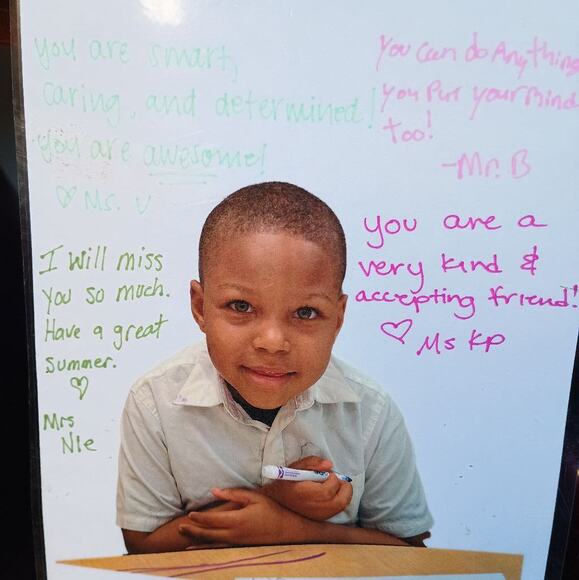 you are smart,
caring, and determined!
you are awesome!
♡ Ms. V
You Can do Anything
you Put your mind
too!
-Mr. B
you are a
very kind &
accepting friend!
♡ Ms KP
I will miss
you so much.
Have a great
summer.
♡
Mrs
Nie